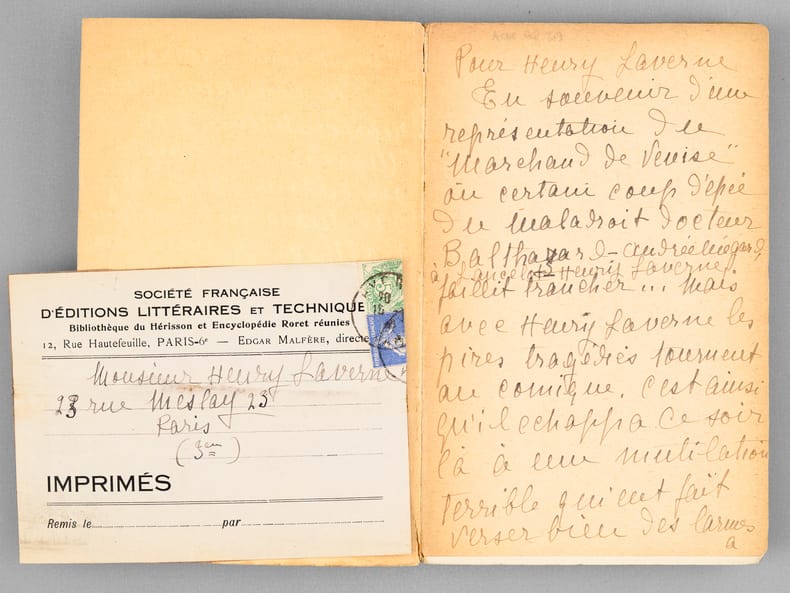 SOCIÉTÉ FRANÇAISE
D'ÉDITIONS LITTÉRAIRES ET TECHNIQUE
Bibliothèque du Hérisson et Encyclopédie Roret réunies
12, Rue Hautefeuille, PARIS-6e — EDGAR MALFÈRE, directe
Monsieur Henry Laverne
23 rue Meslay 23
Paris
(3em)
IMPRIMÉS
Remis le par
Pour Henry Laverne
En souvenir d'une
représentation du
"Marchand de Venise"
où certain coup d'épée
du maladroit docteur
Balthazard - Andrée Mégard,
à Lancelot Henry Laverne
faillit trancher ... Mais
avec Henry Laverne les
pires tragédies tournent
au comique. c'est ainsi
qu'il echappa ce soir
là à une mutilation
terrible qui eut fait
verser bien des larmes
a